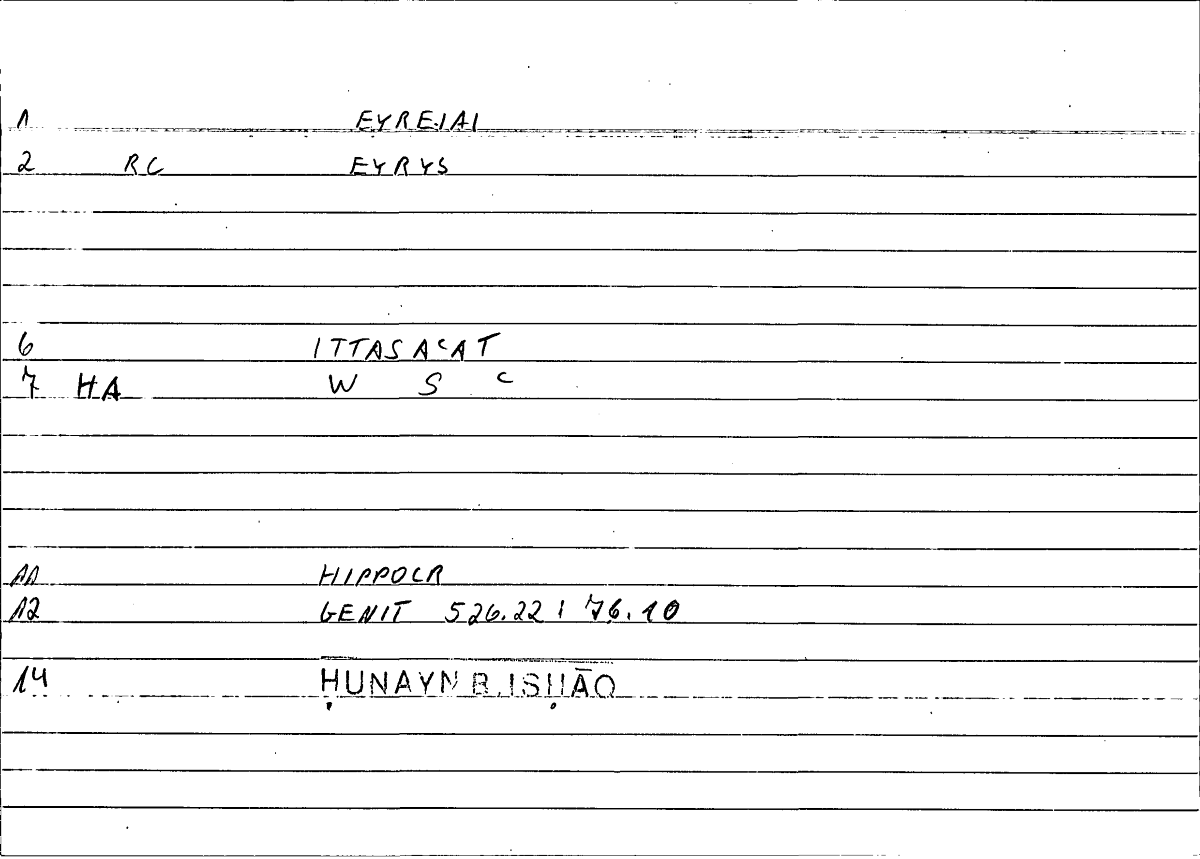 1 EYREIAI
2 RC EYRYS
6 ITTASAᶜAT
7 HA W S ᶜ
11 HIPPOCR
12 GENIT 526.22 ; 76.10
14 ḤUNAYN B. ISḤĀQ